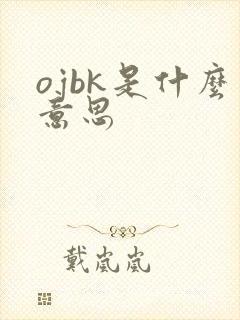 ojbk是什麼
意思
戴嵐嵐